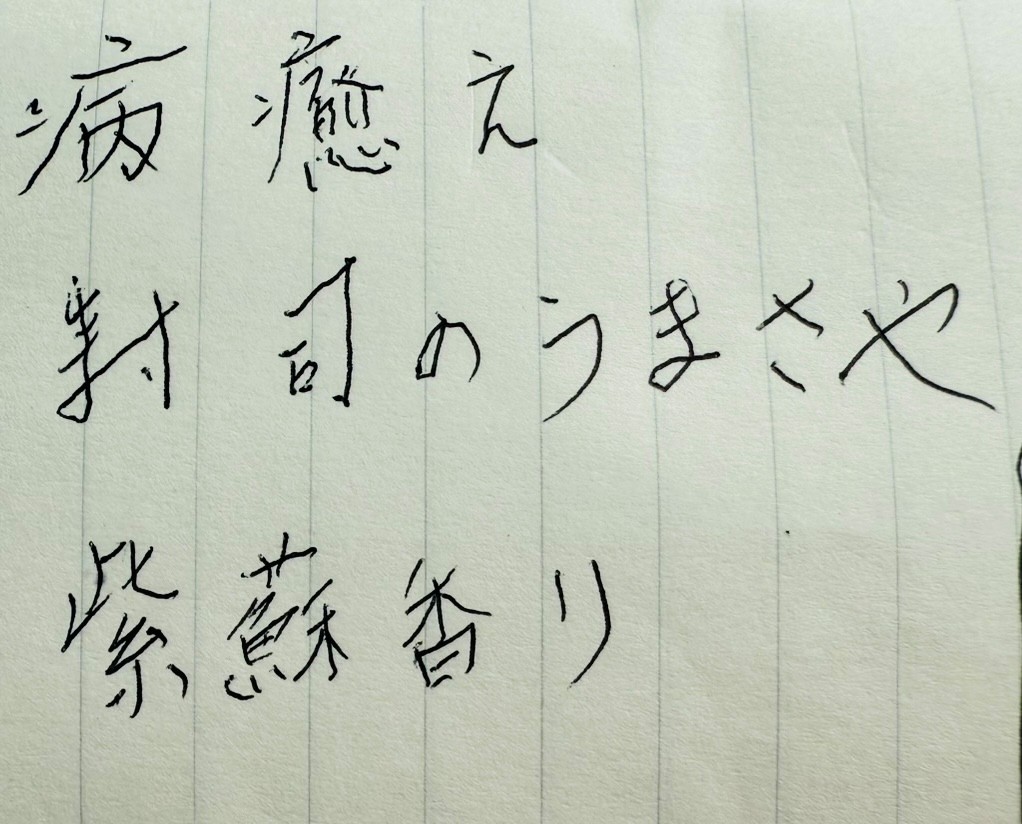 病癒え
封司のうまさや
紫蘇香り